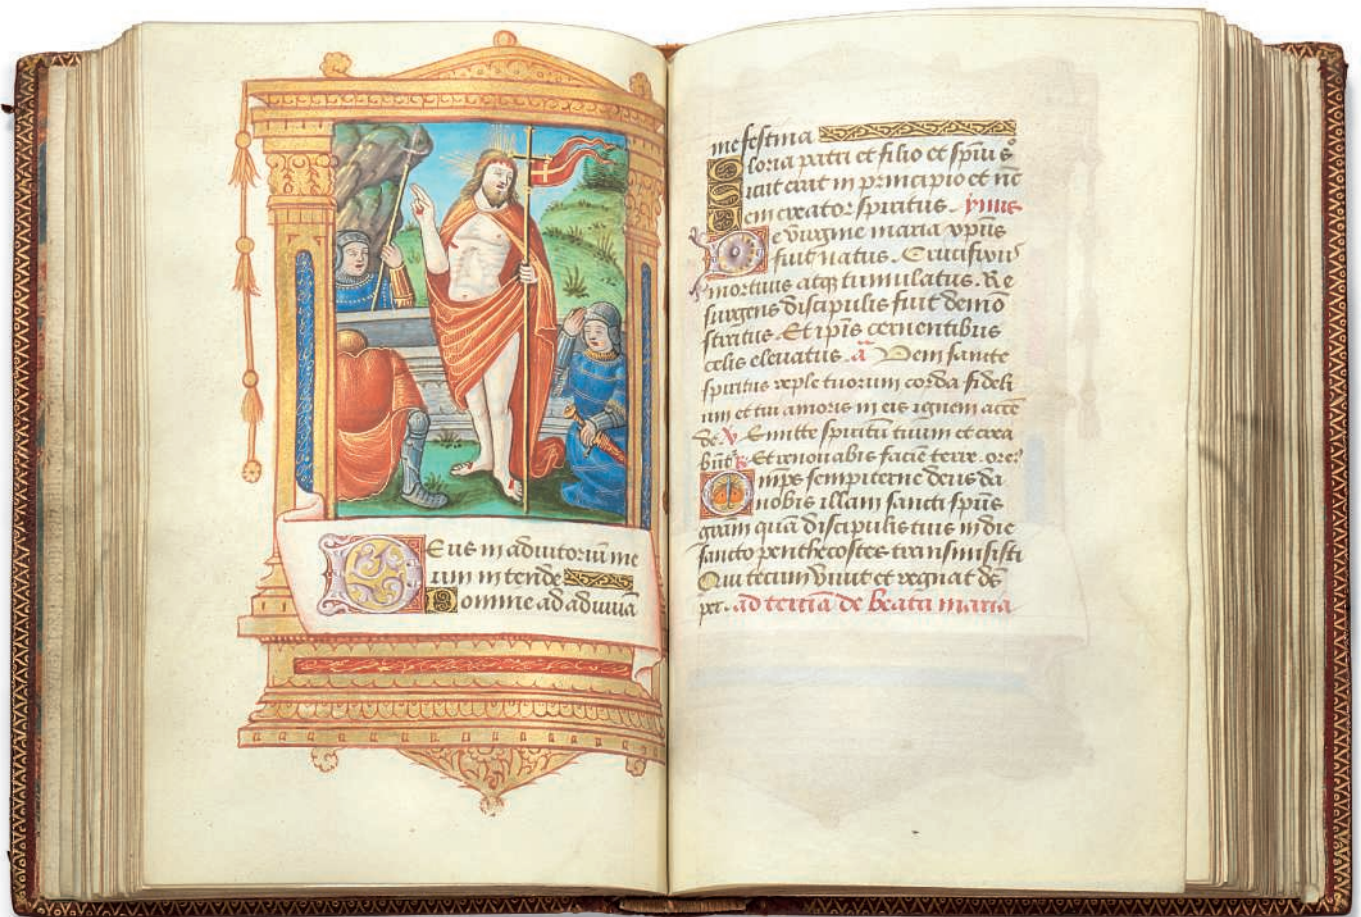 Deus in adiutoriu me
um intende
Domine ad adiuuā
me festina
Gloria patri et filio et spiu s
Sicut erat in principio et nc
Veni creator spiritus. ymus
De virgine maria xpus
fuit natus. Crucifixus
mortuus atqz tumulatus. Re
surgens discipulis fuit demō
stratus. Et ipis cernentibus
celis eleuatus. a Veni sancte
spiritus reple tuorum corda fideli
um et tui amoris in eis ignem accē
de V Emitte spiritū tuum et crea
būt R Et renouabis faciē terre. ore
Omps sempiterne deus da
nobis illam sancti spūs
grām quā discipulis tuis in die
sancto penthecostes transmisisti
Qui tecum viuit et regnat ds
per. ad terciā de beata maria